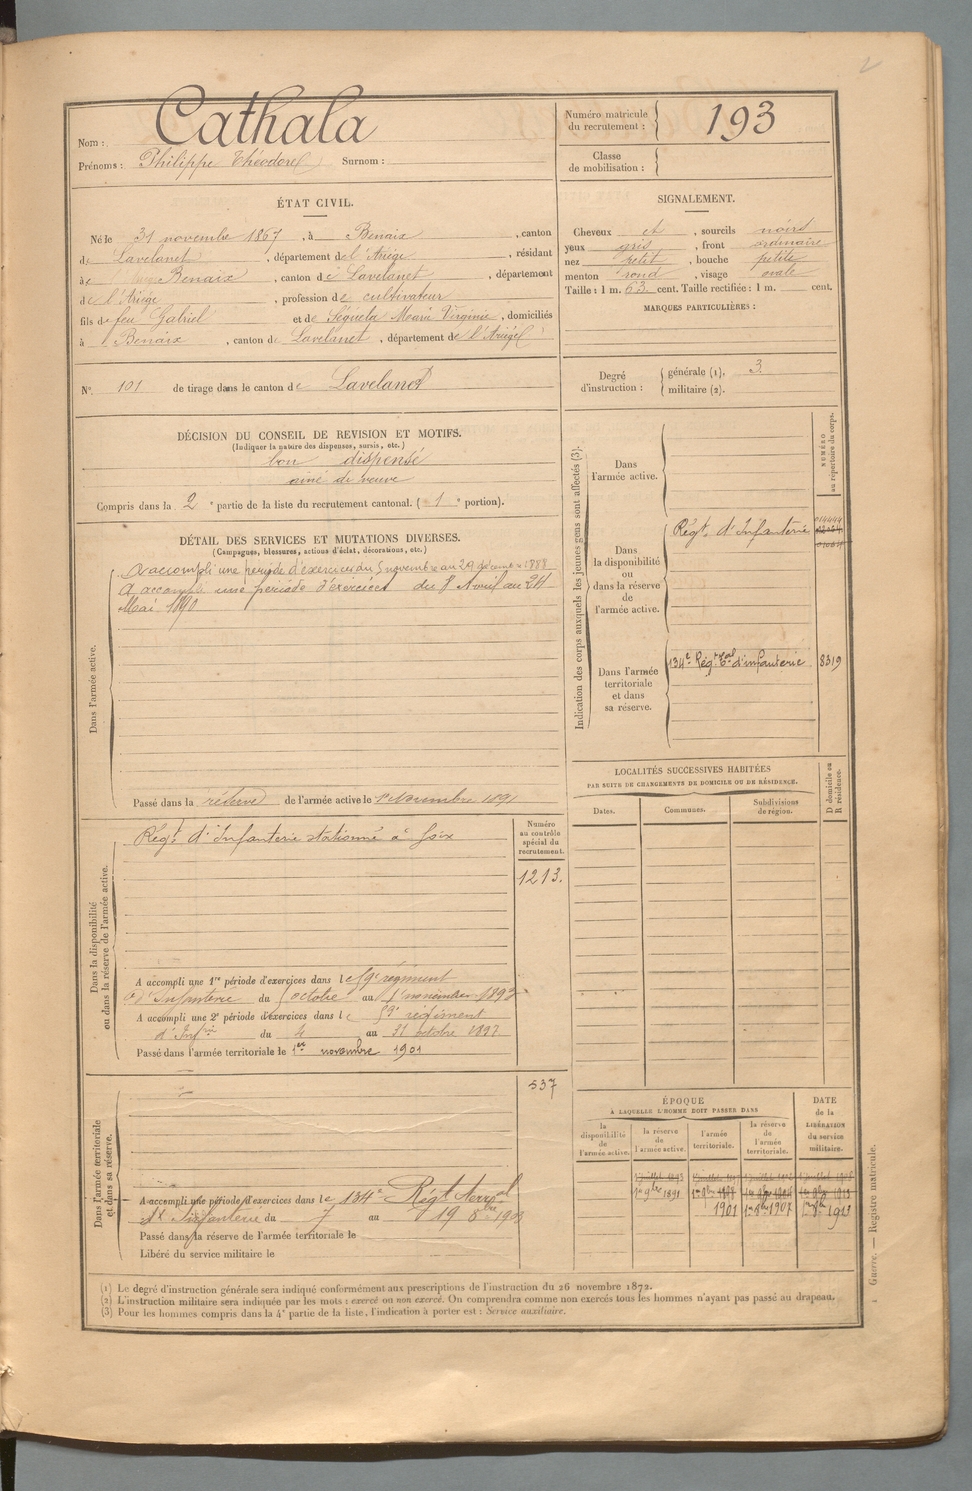 Nom : Cathala
Prénoms : Philippe Théodore Surnom :
Numéro matricule du recrutement : 193
Classe de mobilisation :
ÉTAT CIVIL.
Né le 31 novembre 1867, à Benaix, canton
de Lavelanet, département de l'Ariège, résidant
à Benaix, canton de Lavelanet, département
de l'Ariège, profession de cultivateur
fils de feu Gabriel et de Séguela Marie Virginie, domiciliés
à Benaix, canton de Lavelanet, département de l'Ariège
N° 101 de tirage dans le canton de Lavelanet
SIGNALEMENT.
Cheveux et, sourcils noirs
yeux gris, front ordinaire
nez petit, bouche petite
menton rond, visage ovale
Taille : 1 m. 63 cent. Taille rectifiée : 1 m. cent.
MARQUES PARTICULIÈRES :
Degré d'instruction : générale (1). 3.
militaire (2).
DÉCISION DU CONSEIL DE REVISION ET MOTIFS.
(Indiquer la nature des dispenses, sursis, etc.)
bon dispensé
ainé de veuve
Compris dans la 2e partie de la liste du recrutement cantonal. (1e portion).
DÉTAIL DES SERVICES ET MUTATIONS DIVERSES.
(Campagnes, blessures, actions d'éclat, décorations, etc.)
Dans l'armée active.
A accompli une période d'exercices du 5 novembre au 29 décembre 1888
A accompli une période d'exercices du 8 Avril au 24
Mai 1890
Passé dans la réserve de l'armée active le 1er Novembre 1891
Dans la disponibilité ou dans la réserve de l'armée active.
Régt d'Infanterie stationné à Foix
Numéro au contrôle spécial du recrutement.
1213.
A accompli une 1re période d'exercices dans le 59e régiment
d'Infanterie du octobre au 1er novembre 1893
A accompli une 2e période d'exercices dans le 59e régiment
d'Infrie du 4 au 31 octobre 1897
Passé dans l'armée territoriale le 1er novembre 1901
Dans l'armée territoriale et dans sa réserve.
537
A accompli une période d'exercices dans le 134e Régt terral
d'Infanterie du 7 au 19 8bre 1903
Passé dans la réserve de l'armée territoriale le
Libéré du service militaire le
Indication des corps auxquels les jeunes gens sont affectés (3).
NUMÉRO au répertoire du corps.
Dans l'armée active.
Dans la disponibilité ou dans la réserve de l'armée active.
Régt d'Infanterie
Dans l'armée territoriale et dans sa réserve.
134e Régt ral d'infanterie 8319
LOCALITÉS SUCCESSIVES HABITÉES
PAR SUITE DE CHANGEMENTS DE DOMICILE OU DE RÉSIDENCE.
Dates. Communes. Subdivisions de région. D domicile ou R résidence.
ÉPOQUE
À LAQUELLE L'HOMME DOIT PASSER DANS
la disponibilité de l'armée active.
la réserve de l'armée active.
l'armée territoriale.
la réserve de l'armée territoriale.
DATE de la LIBÉRATION du service militaire.
1er 9bre 1891
1901 1er 9bre 1907
(1) Le degré d'instruction générale sera indiqué conformément aux prescriptions de l'instruction du 26 novembre 1872.
(2) L'instruction militaire sera indiquée par les mots : exercé ou non exercé. On comprendra comme non exercés tous les hommes n'ayant pas passé au drapeau.
(3) Pour les hommes compris dans la 4e partie de la liste, l'indication à porter est : Service auxiliaire.
Guerre. — Registre matricule.